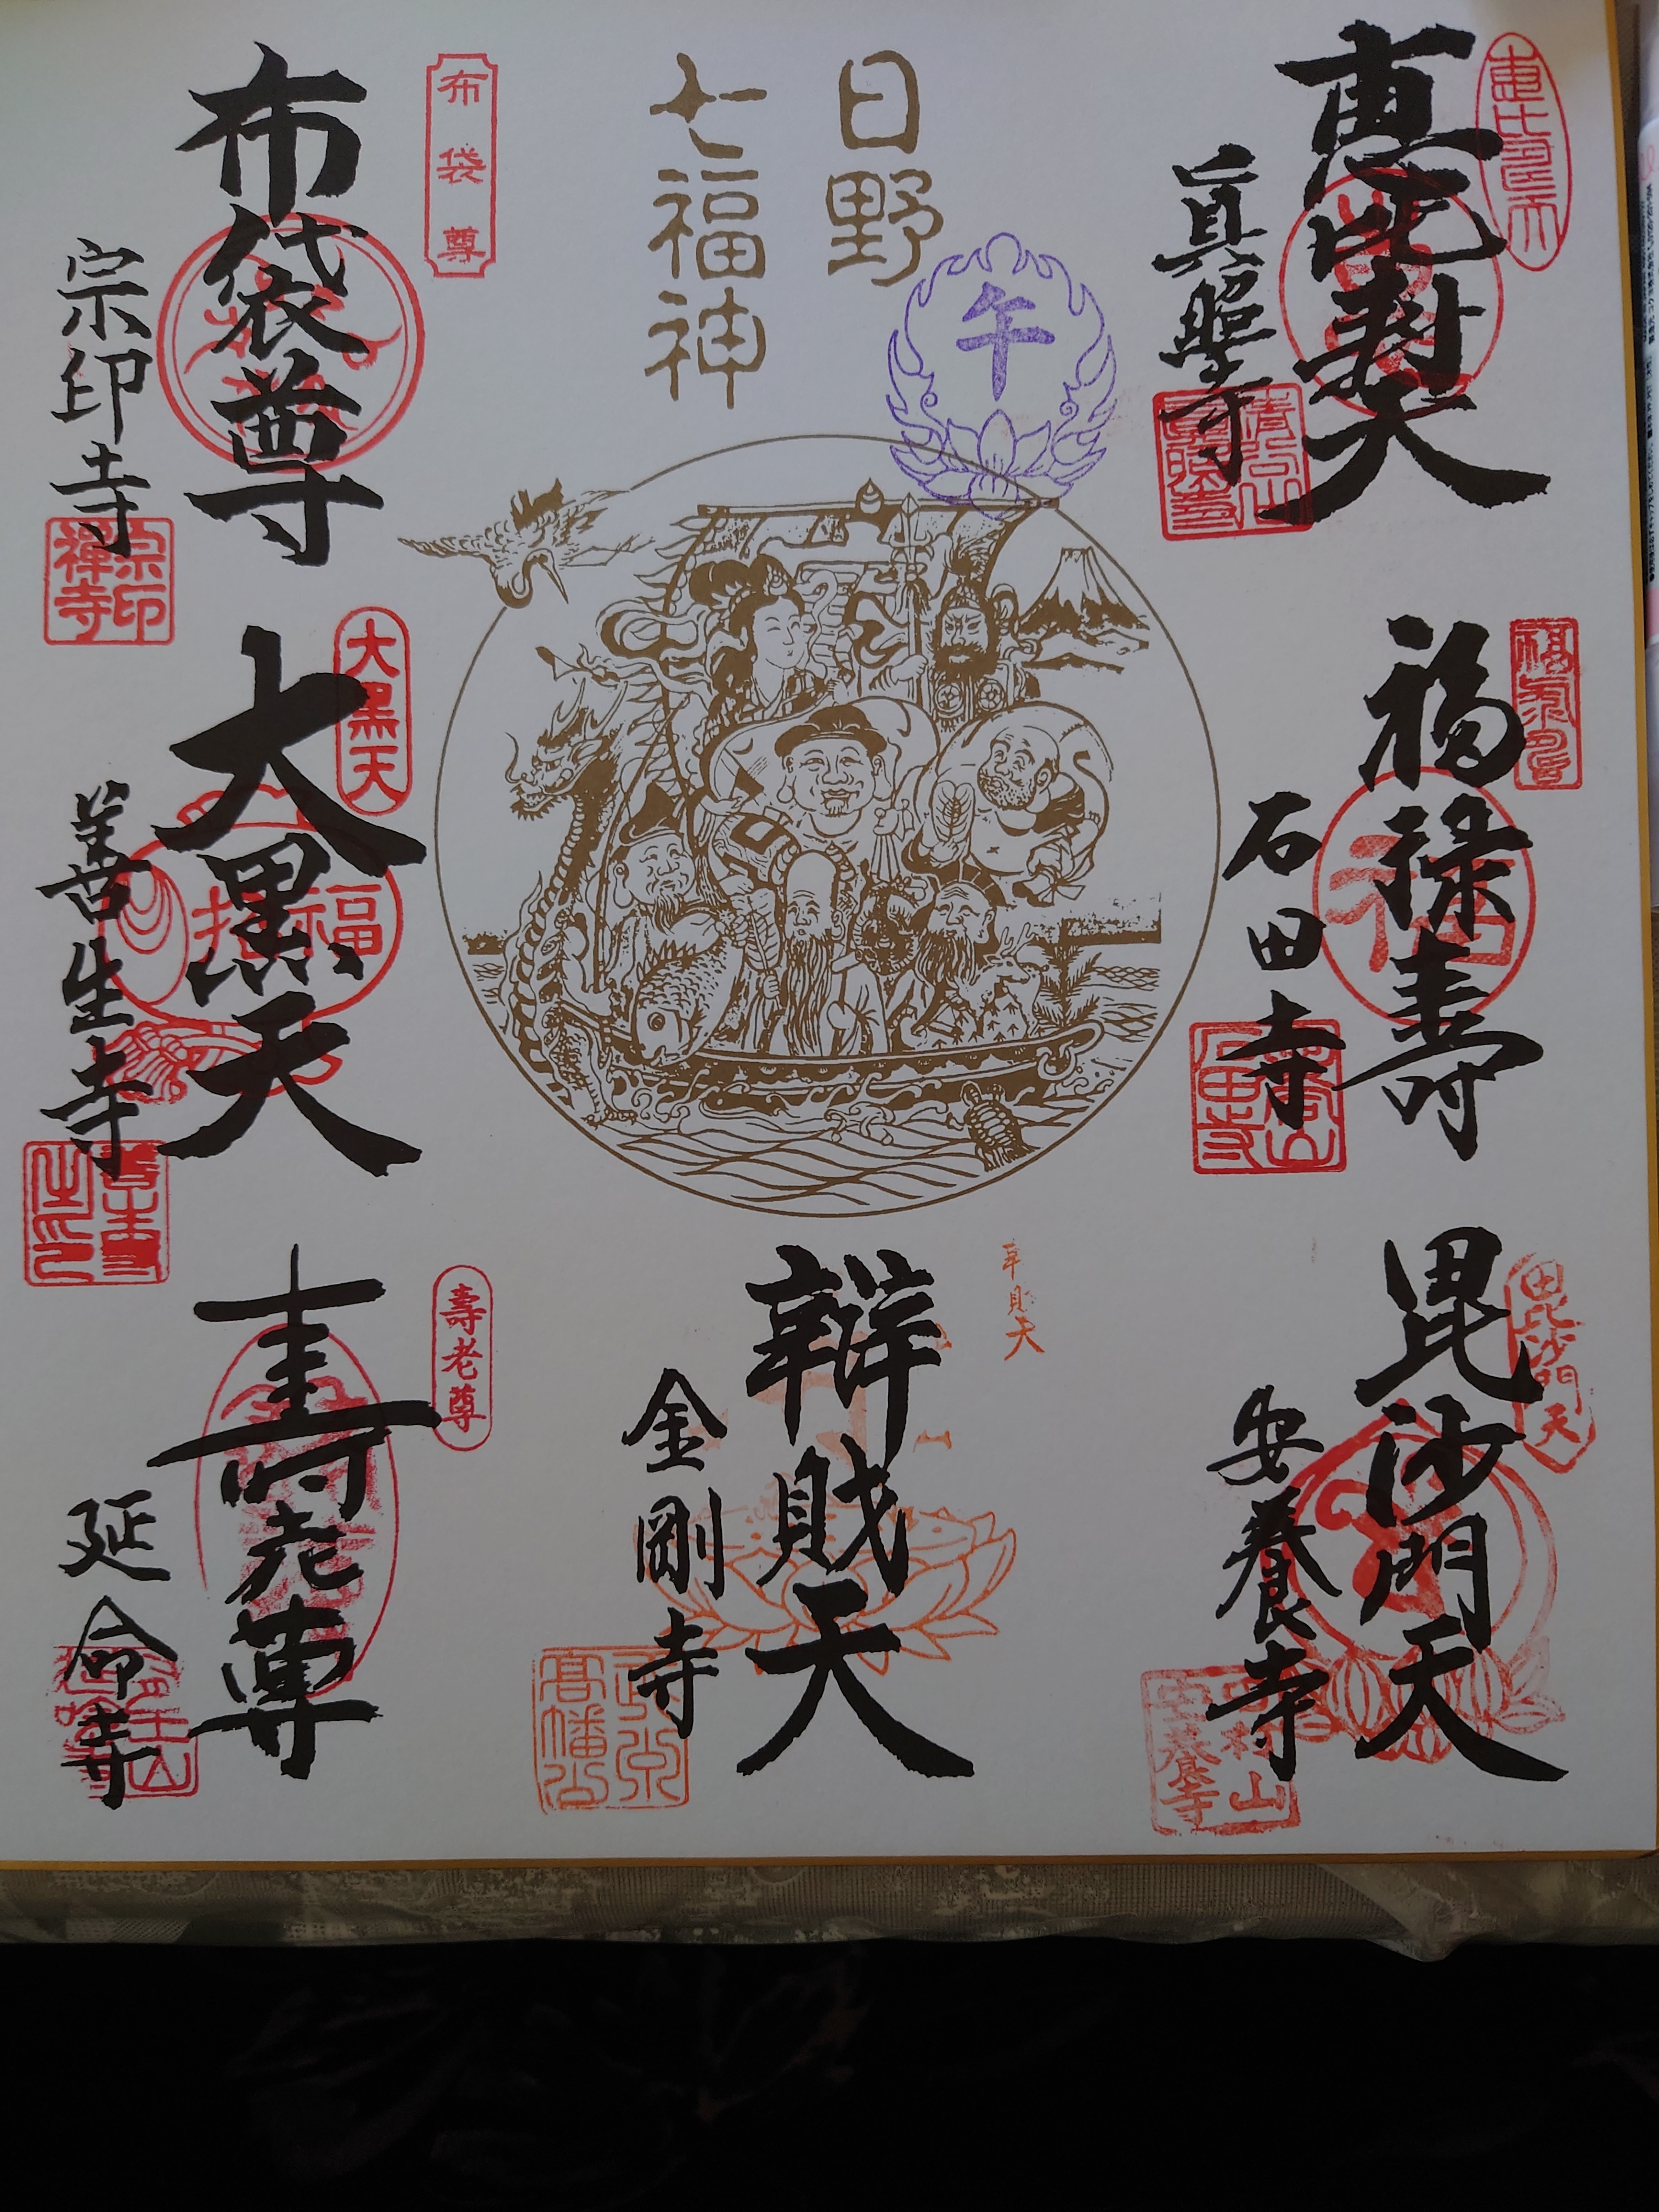 恵比寿天
眞照寺
日野
七福神
午
布袋尊
布袋尊
宗印寺
宗印
禅寺
福禄寿
石田寺
大黒天
大黒天
福
招
善生寺
毘沙門天
毘沙門天
安養寺
安養寺
辨財天
金剛寺
高幡
壽老尊
壽老尊
延命寺